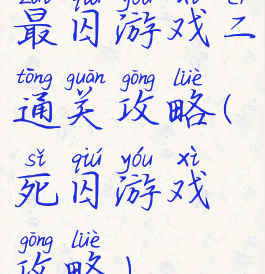 zuì qiú yóu xì èr
最囚游戏二
tōng guān gōng lüè
通关攻略(
sǐ qiú yóu xì
死囚游戏
gōng lüè
攻略)